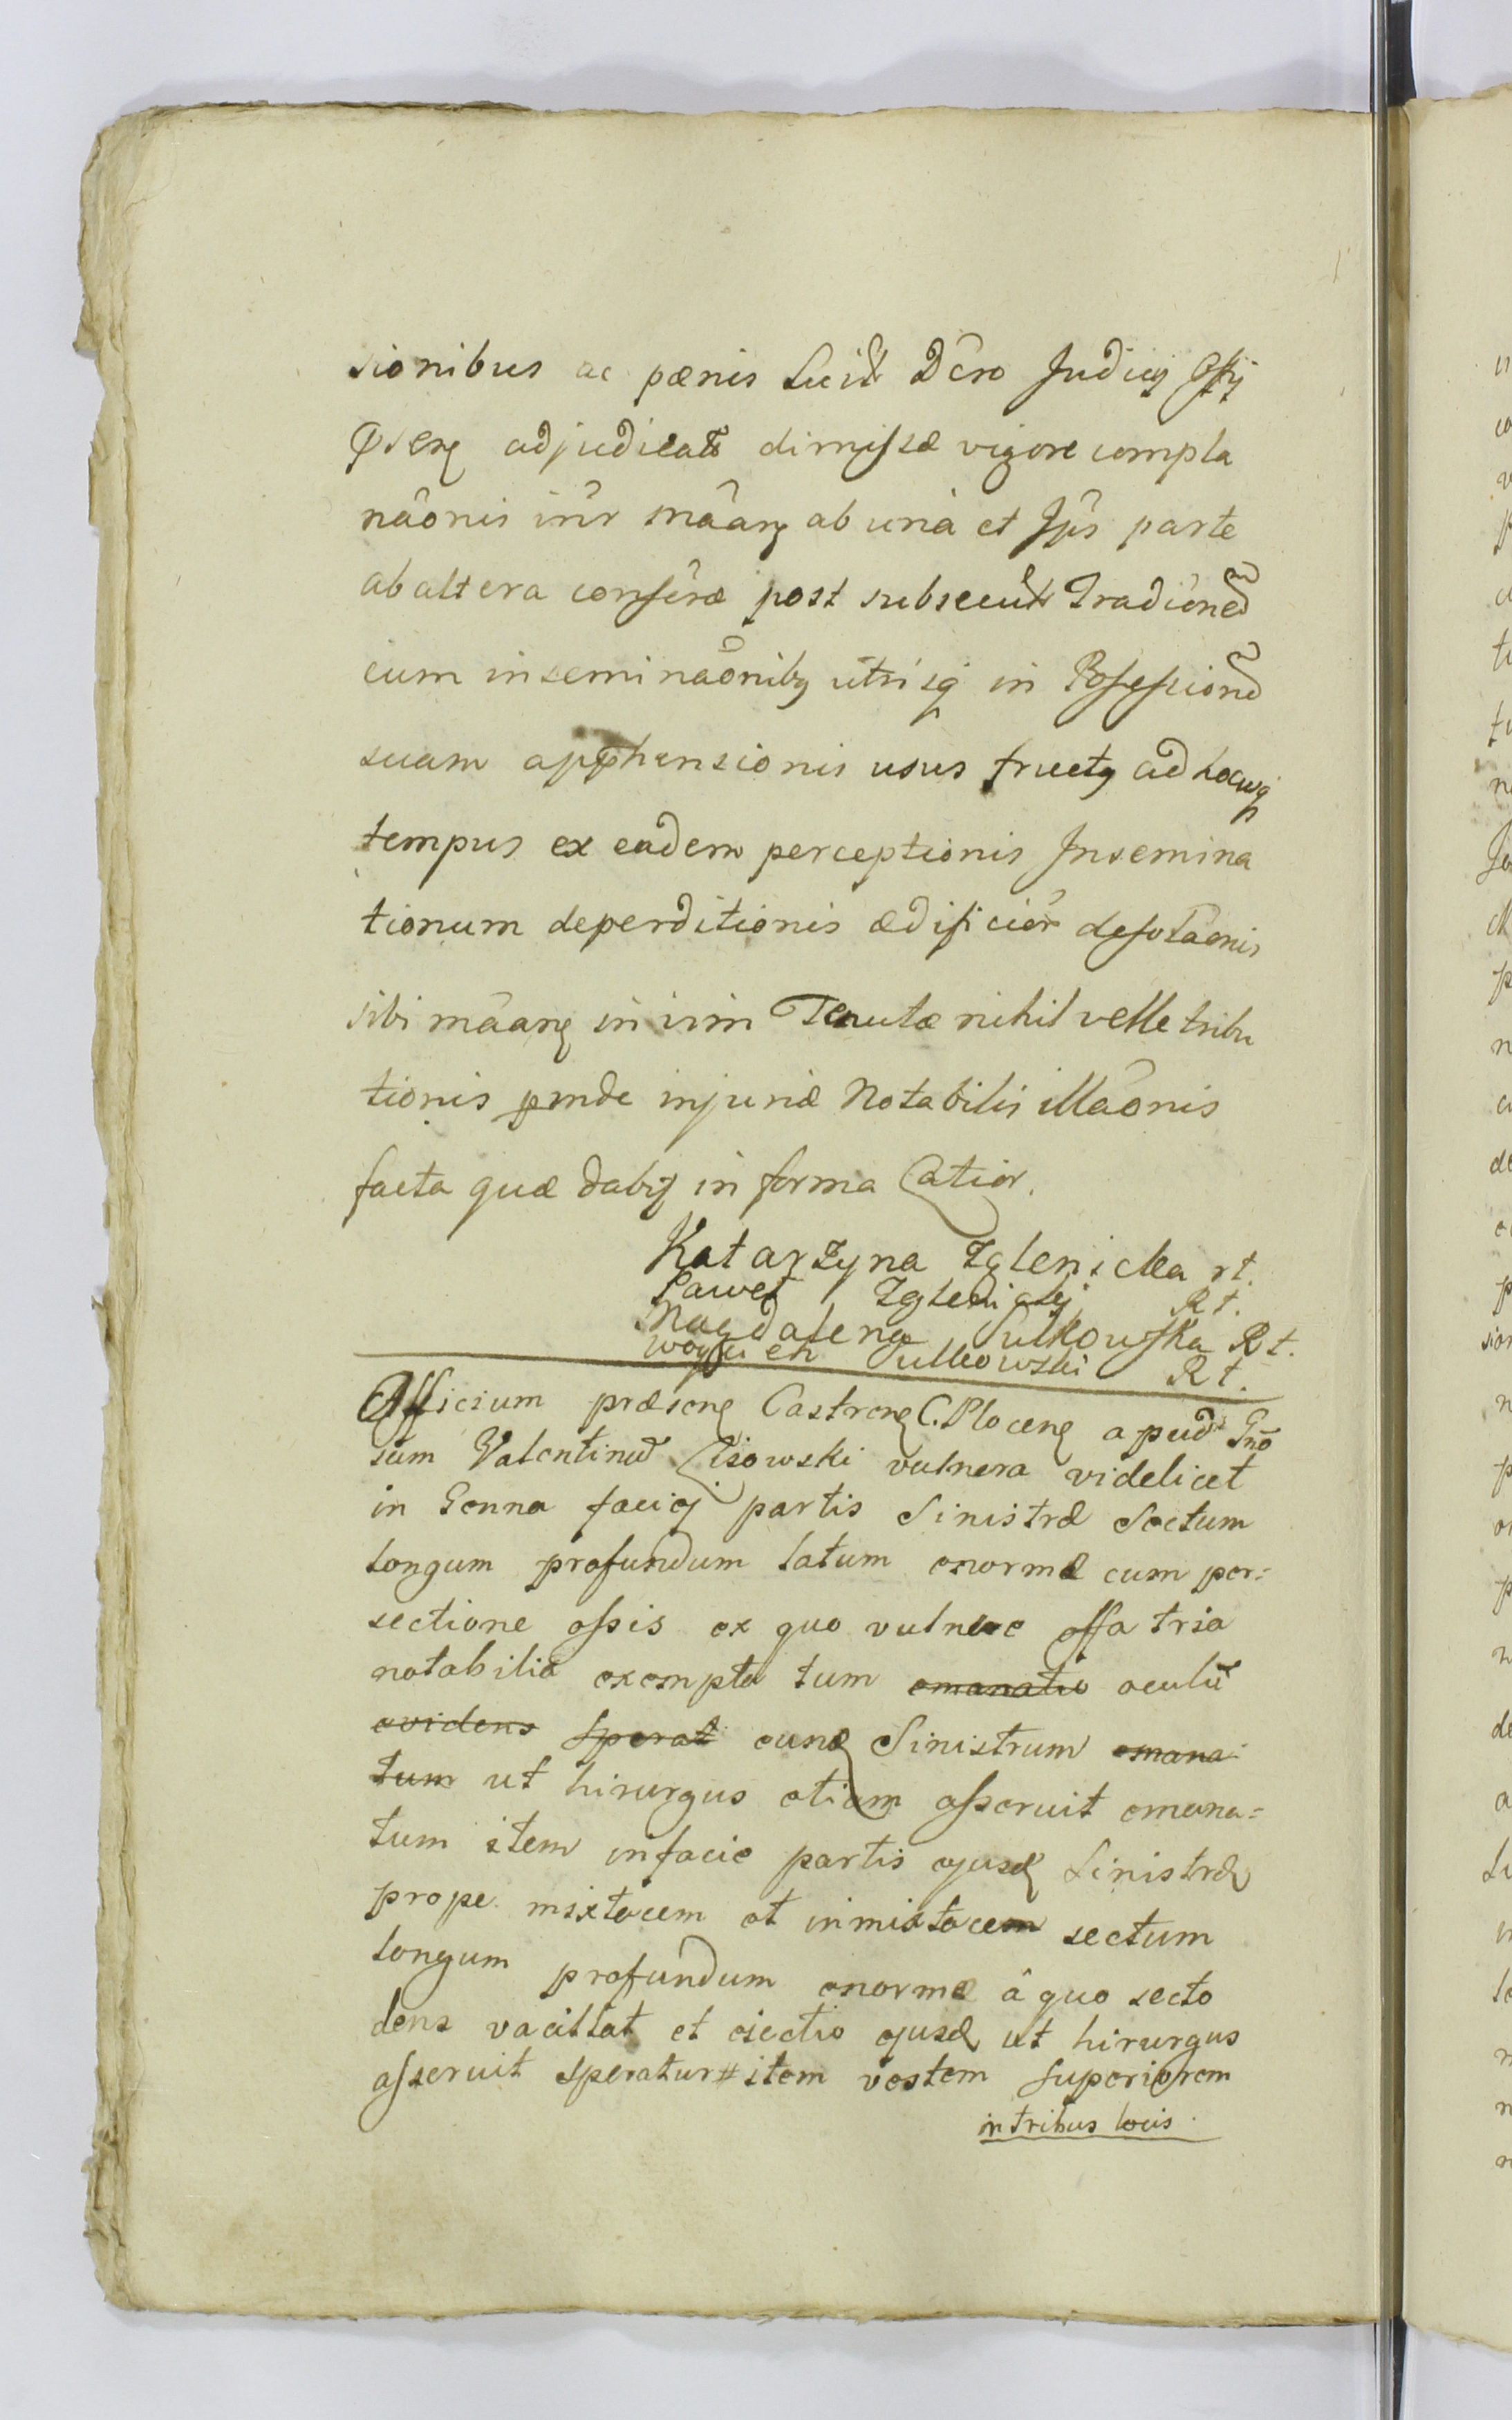 sionibus ac pænis Lucid Dcro Judicij Offij
Pnserꝭ adjudicat dimissæ vigore compla
nâonis inr mâarꝭ ab unà et Jps parte
ab altera conferæ post subsecut Tradiöned
cum inseminaônibꝫ utrisqꝫ in Possessioned
suam apphensionis usus fructꝫ ad hocusqꝫ
tempus ex eadem perceptionis Insemina
tionum deperditionis ædificior desolaonis
sibi mâarꝭ in vim Tenutæ nihil velle tribu
tionis pmde injuriæ Notabilis illâonis
facta quæ dabiꝫ in forma Latior.
Katarzyna Zglenicka rt.
Paweł Zglenicki Rt.
Magdalena Sulkowska Rt.
woyciech Sulkowski Rt.
Officium præsenꝭ Castrenꝭ C. Plocenꝭ apud Gno
sum Valentinum Lisowski vulnera videlicet
in Genna faciej partis Sinistræ Sectum
longum profundum latum enormæ cum per=
sectione ossis ex quo vulnere ossa tria
notabilia exempta tum emanatio oculū
evidens Sperat eundꝭ Sinistrum emana
tum ut hirurgus etiam asseruit emana=
tum item in facie partis ejusdꝭ Sinistræ
prope mixtacem et in mixtacem sectum
longum profundum enormæ â quo secto
dens vacillat et eiectio ejusdꝭ ut hirurgus
asseruit speratur # item vestem superiorem
in tribus locis.